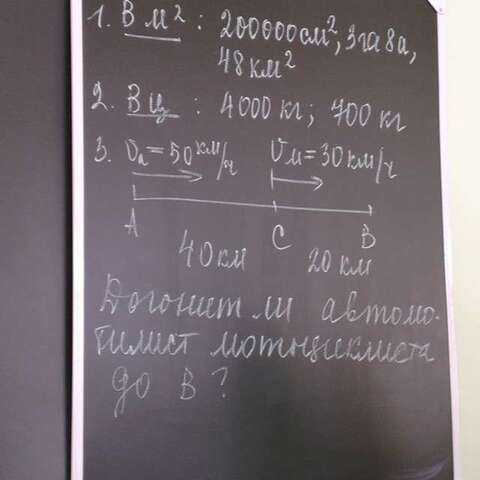 1. В м² : 200000см², 3га 8а,
48км²
2. В ц : 4000кг; 700кг
3. Vа=50км/ч Vм=30км/ч
А С В
40км 20км
Догонит ли автомо-
билист мотоциклиста
до В?